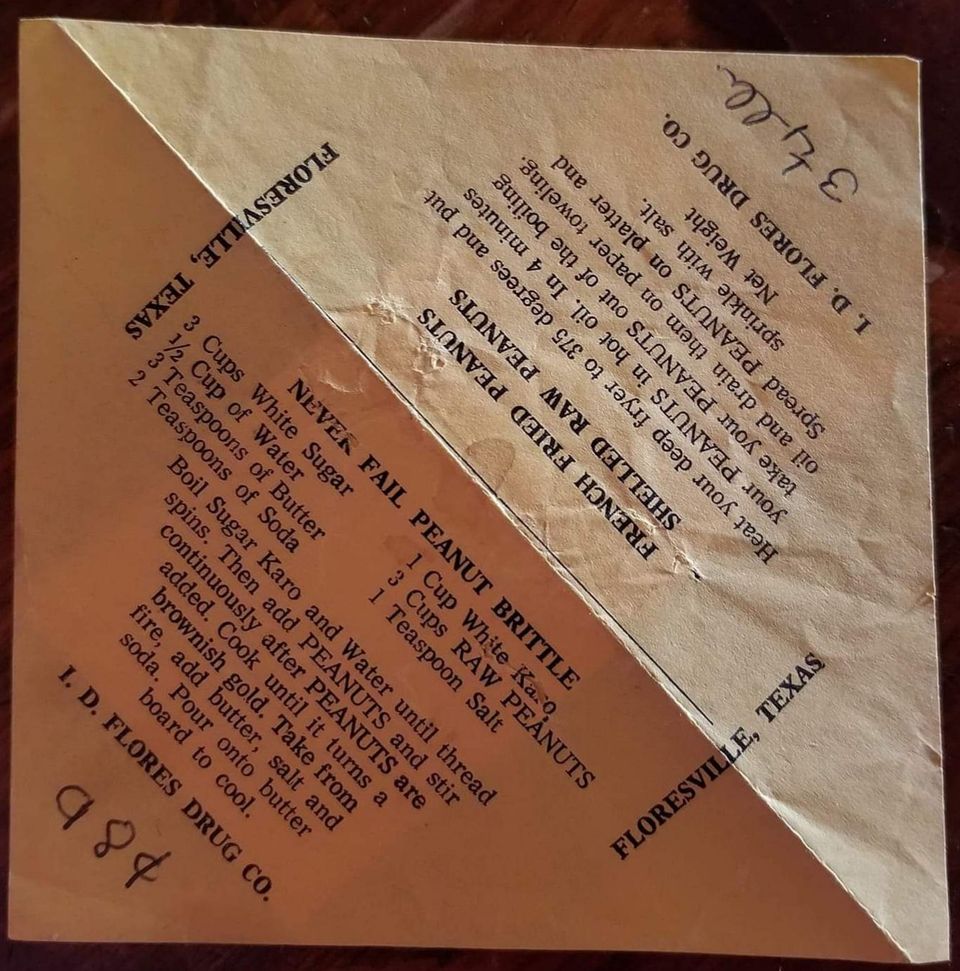 NEVER FAIL PEANUT BRITTLE
3 Cups White Sugar
1 Cup White Karo
1/2 Cup of Water
3 Cups RAW PEANUTS
3 Teaspoons of Butter
1 Teaspoon Salt
2 Teaspoons of Soda
Boil Sugar Karo and Water until thread
spins. Then add PEANUTS and stir
continuously after PEANUTS are
added. Cook until it turns a
brownish gold. Take from
fire, add butter, salt and
soda. Pour onto butter
board to cool.
I. D. FLORES DRUG CO.
98¢
FLORESVILLE, TEXAS
FLORESVILLE, TEXAS
FRENCH FRIED PEANUTS
SHELLED RAW PEANUTS
Heat your deep fryer to 375 degrees and put
your PEANUTS in hot oil. In 4 minutes
take your PEANUTS out of the boiling
oil and drain them on paper toweling.
Spread PEANUTS on platter and
sprinkle with salt.
Net Weight
I. D. FLORES DRUG CO.